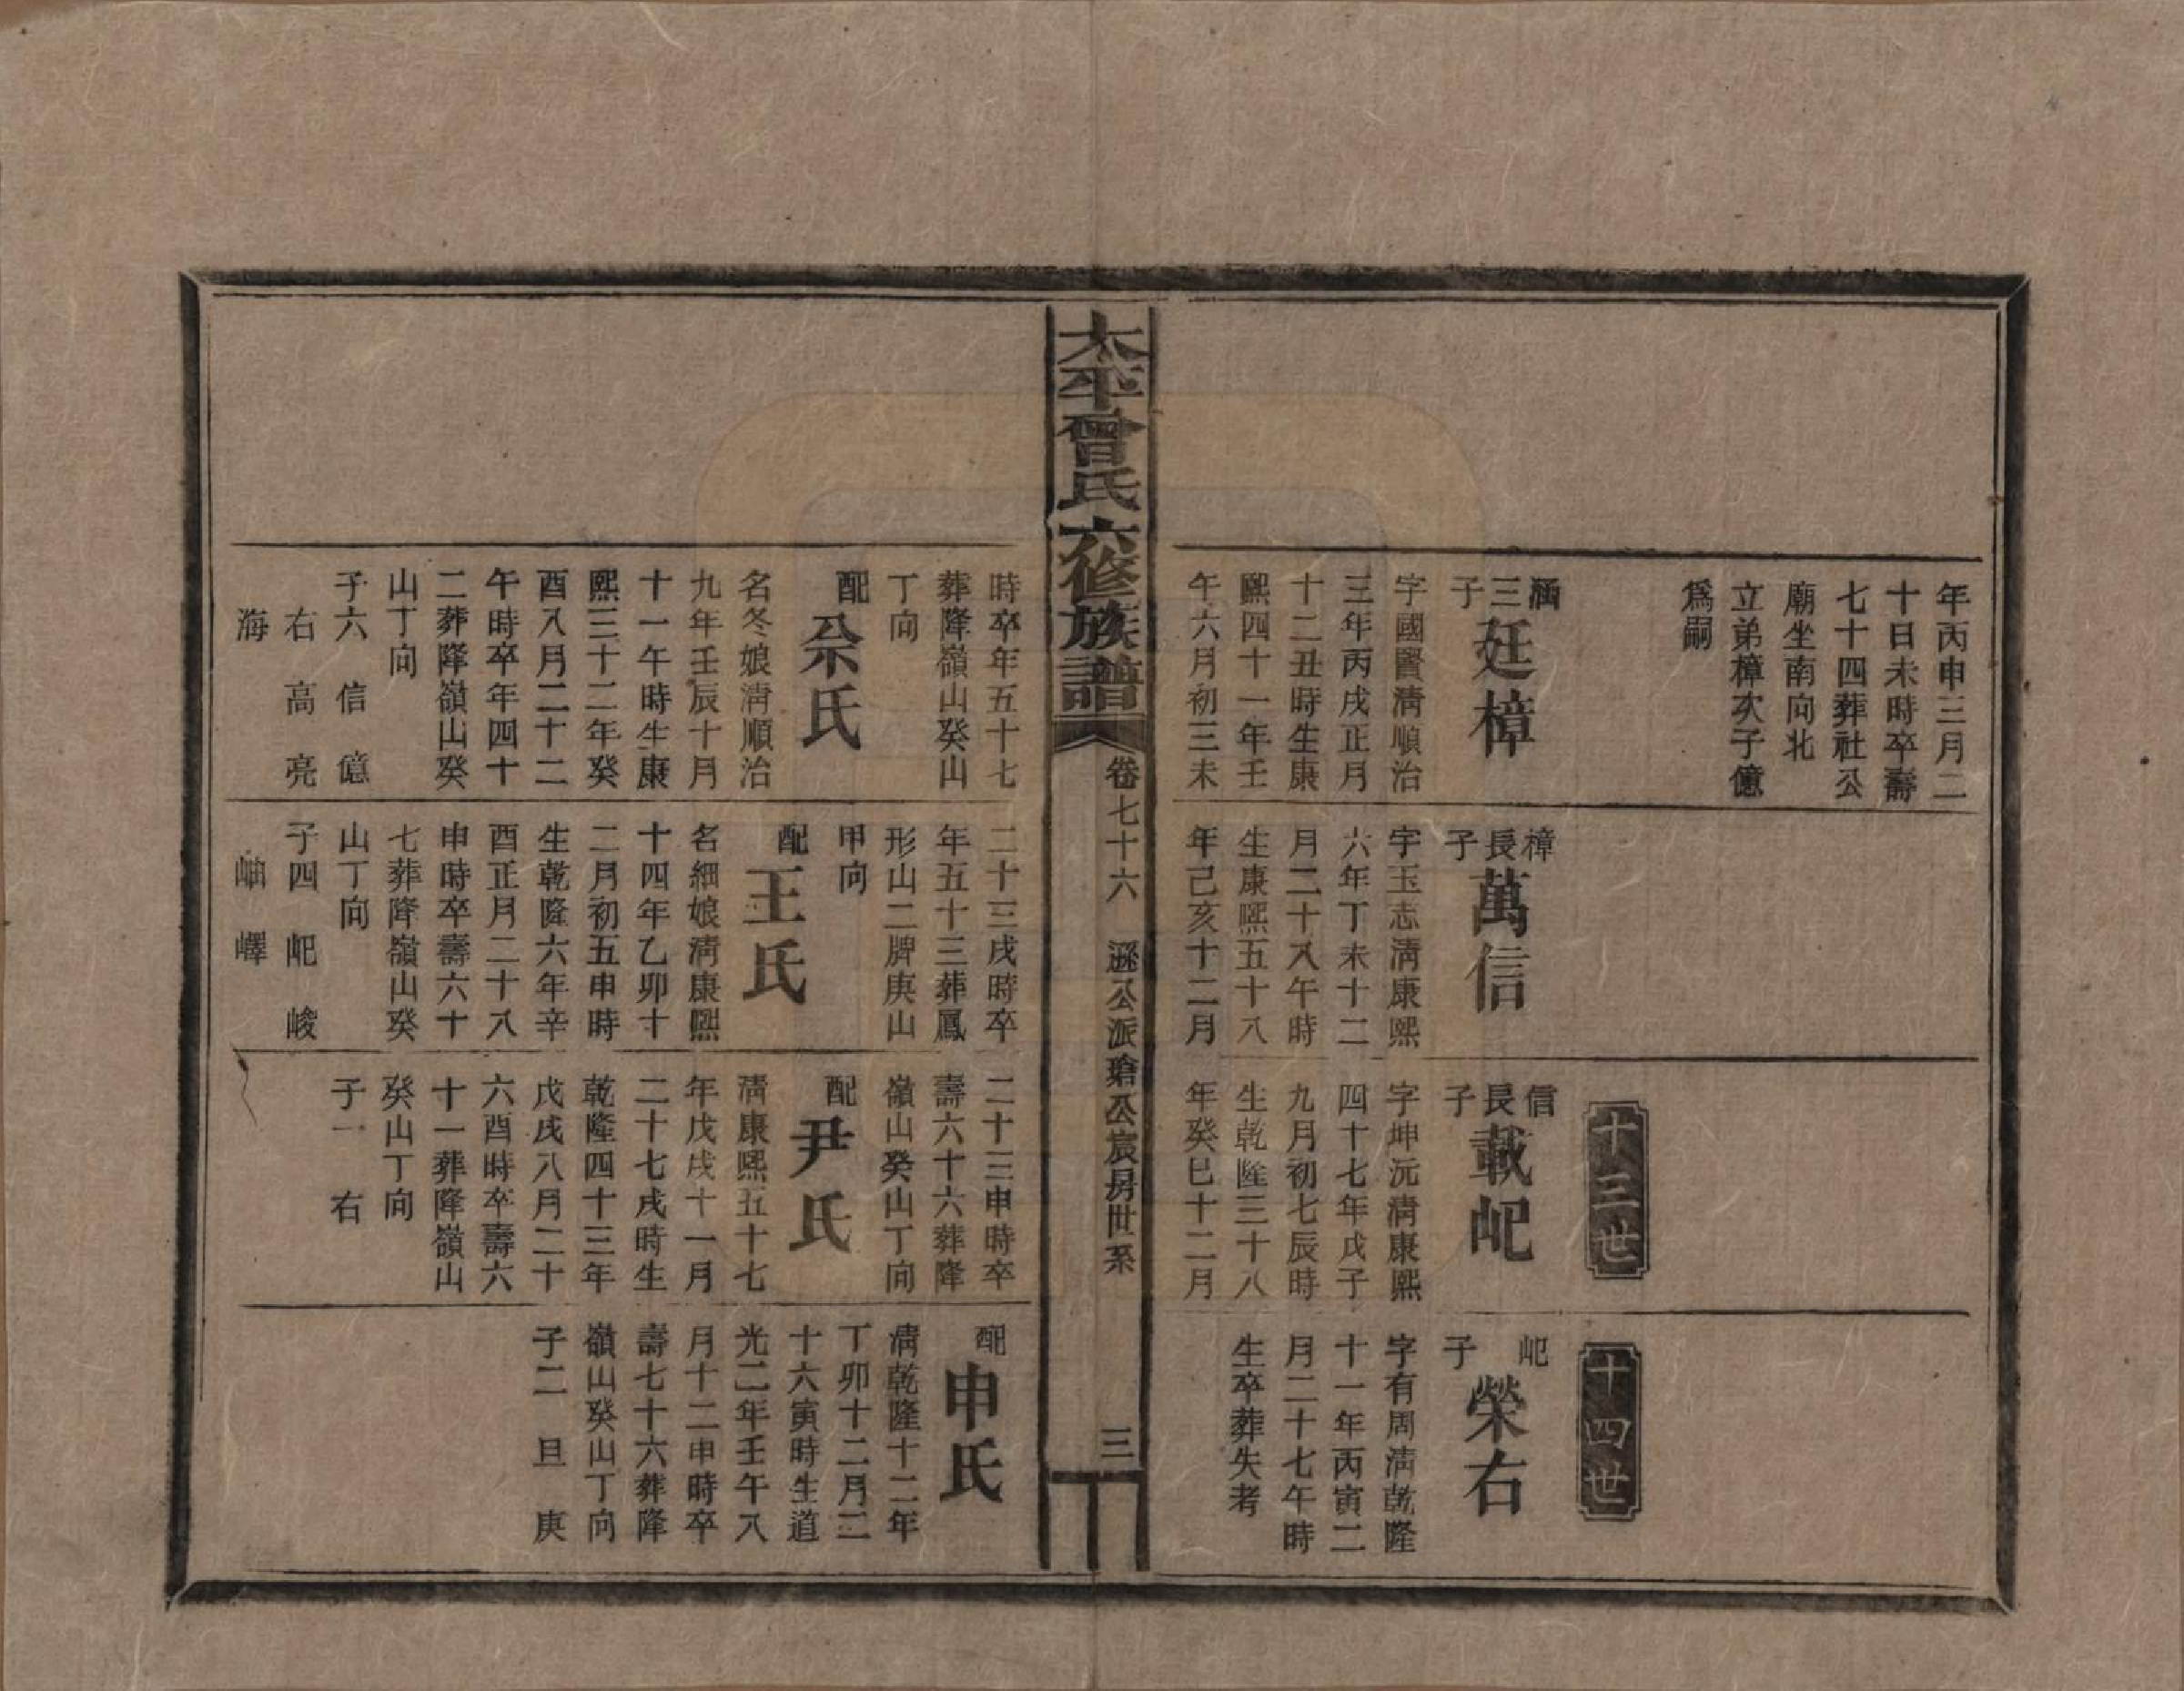 年丙申三月二
十日未時卒壽
七十四葬社公
廟坐南向北
立弟樟次子億
爲嗣
涵三子
廷樟
字國賢清順治
三年丙戌正月
十二丑時生康
熙四十一年壬
午六月初三未
樟長子
萬信
字玉志清康熙
六年丁未十二
月二十八午時
生康熙五十八
年己亥十二月
十三世
信長子
載𡵆
字坤沅清康熙
四十七年戊子
九月初七辰時
生乾隆三十八
年癸巳十二月
十四世
𡵆子
榮右
字有周清乾隆
十一年丙寅二
月二十七午時
生卒葬失考
太平曾氏六修族譜
卷七十六
遜公派瑲公宸房世系
三
時卒年五十七
葬隆嶺山癸山
丁向
配
佘氏
名冬娘清順治
九年壬辰十月
十一午時生康
熙三十二年癸
酉八月二十二
午時卒年四十
二葬隆嶺山癸
山丁向
子六 信 億
右 高 亮
海
二十三戌時卒
年五十三葬鳳
形山二牌庚山
甲向
配
王氏
名細娘清康熙
十四年乙卯十
二月初五申時
生乾隆六年辛
酉正月二十八
申時卒壽六十
七葬隆嶺山癸
山丁向
子四 𡵆 峻
岫 嶧
二十三申時卒
壽六十六葬隆
嶺山癸山丁向
配
尹氏
清康熙五十七
年戊戌十一月
二十七戌時生
乾隆四十三年
戊戌八月二十
六酉時卒壽六
十一葬隆嶺山
癸山丁向
子一 右
配
申氏
清乾隆十二年
丁卯十二月二
十六寅時生道
光二年壬午八
月十二申時卒
壽七十六葬隆
嶺山癸山丁向
子二 旦 庚